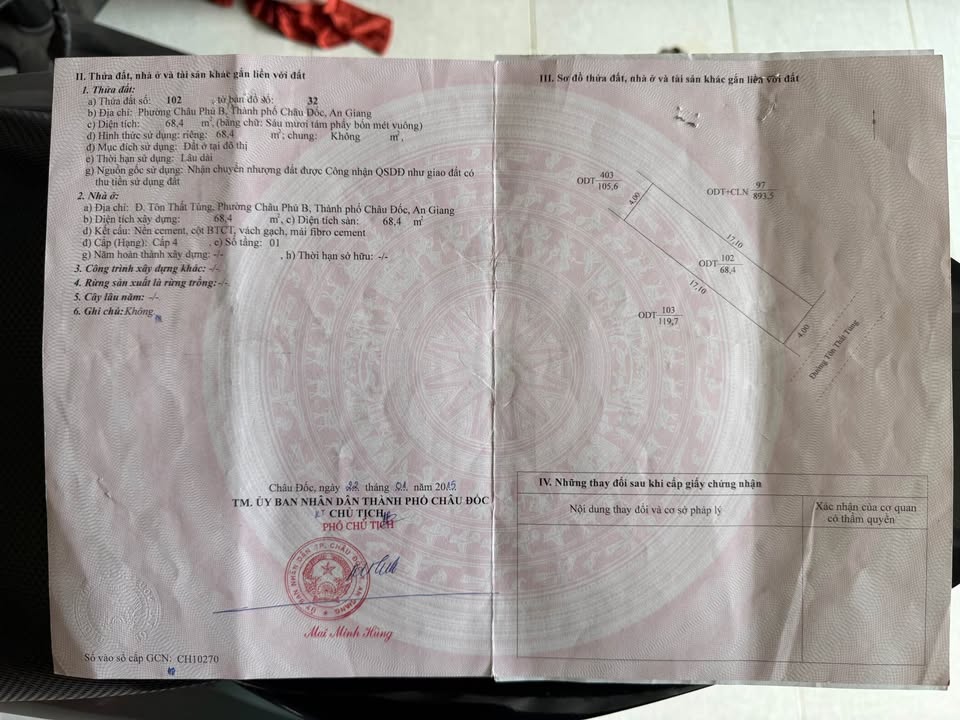 II. Thửa đất, nhà ở và tài sản khác gắn liền với đất
1. Thửa đất:
a) Thửa đất số: 102 , tờ bản đồ số: 32
b) Địa chỉ: Phường Châu Phú B, Thành phố Châu Đốc, An Giang
c) Diện tích: 68,4 m², (bằng chữ: Sáu mươi tám phẩy bốn mét vuông)
d) Hình thức sử dụng: riêng: 68,4 m²; chung: Không m²,
đ) Mục đích sử dụng: Đất ở tại đô thị
e) Thời hạn sử dụng: Lâu dài
g) Nguồn gốc sử dụng: Nhận chuyển nhượng đất được Công nhận QSDĐ như giao đất có
thu tiền sử dụng đất
2. Nhà ở:
a) Địa chỉ: Đ. Tôn Thất Tùng, Phường Châu Phú B, Thành phố Châu Đốc, An Giang
b) Diện tích xây dựng: 68,4 m², c) Diện tích sàn: 68,4 m²
d) Kết cấu: Nền cement, cột BTCT, vách gạch, mái fibro cement
đ) Cấp (Hạng): Cấp 4 , e) Số tầng: 01
g) Năm hoàn thành xây dựng: -/- , h) Thời hạn sở hữu: -/-
3. Công trình xây dựng khác: -/-
4. Rừng sản xuất là rừng trồng: -/-
5. Cây lâu năm: -/-
6. Ghi chú: Không
Châu Đốc, ngày 22 tháng 01 năm 2015
TM. ỦY BAN NHÂN DÂN THÀNH PHỐ CHÂU ĐỐC
KT CHỦ TỊCH
PHÓ CHỦ TỊCH
ỦY BAN NHÂN DÂN TP. CHÂU ĐỐC
AN GIANG
Mai Minh Hùng
Số vào sổ cấp GCN: CH10270
III. Sơ đồ thửa đất, nhà ở và tài sản khác gắn liền với đất
ODT 403
105,6
ODT+CLN 97
893,5
4,00
17,10
ODT 102
68,4
17,10
ODT 103
119,7
4,00
Đường Tôn Thất Tùng
IV. Những thay đổi sau khi cấp giấy chứng nhận
Nội dung thay đổi và cơ sở pháp lý
Xác nhận của cơ quan
có thẩm quyền